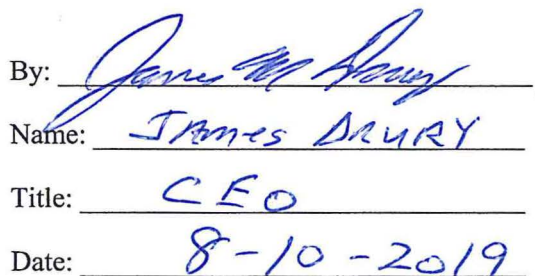 By: James M Drury
Name: JAMES DRURY
Title: CEO
Date: 8-10-2019